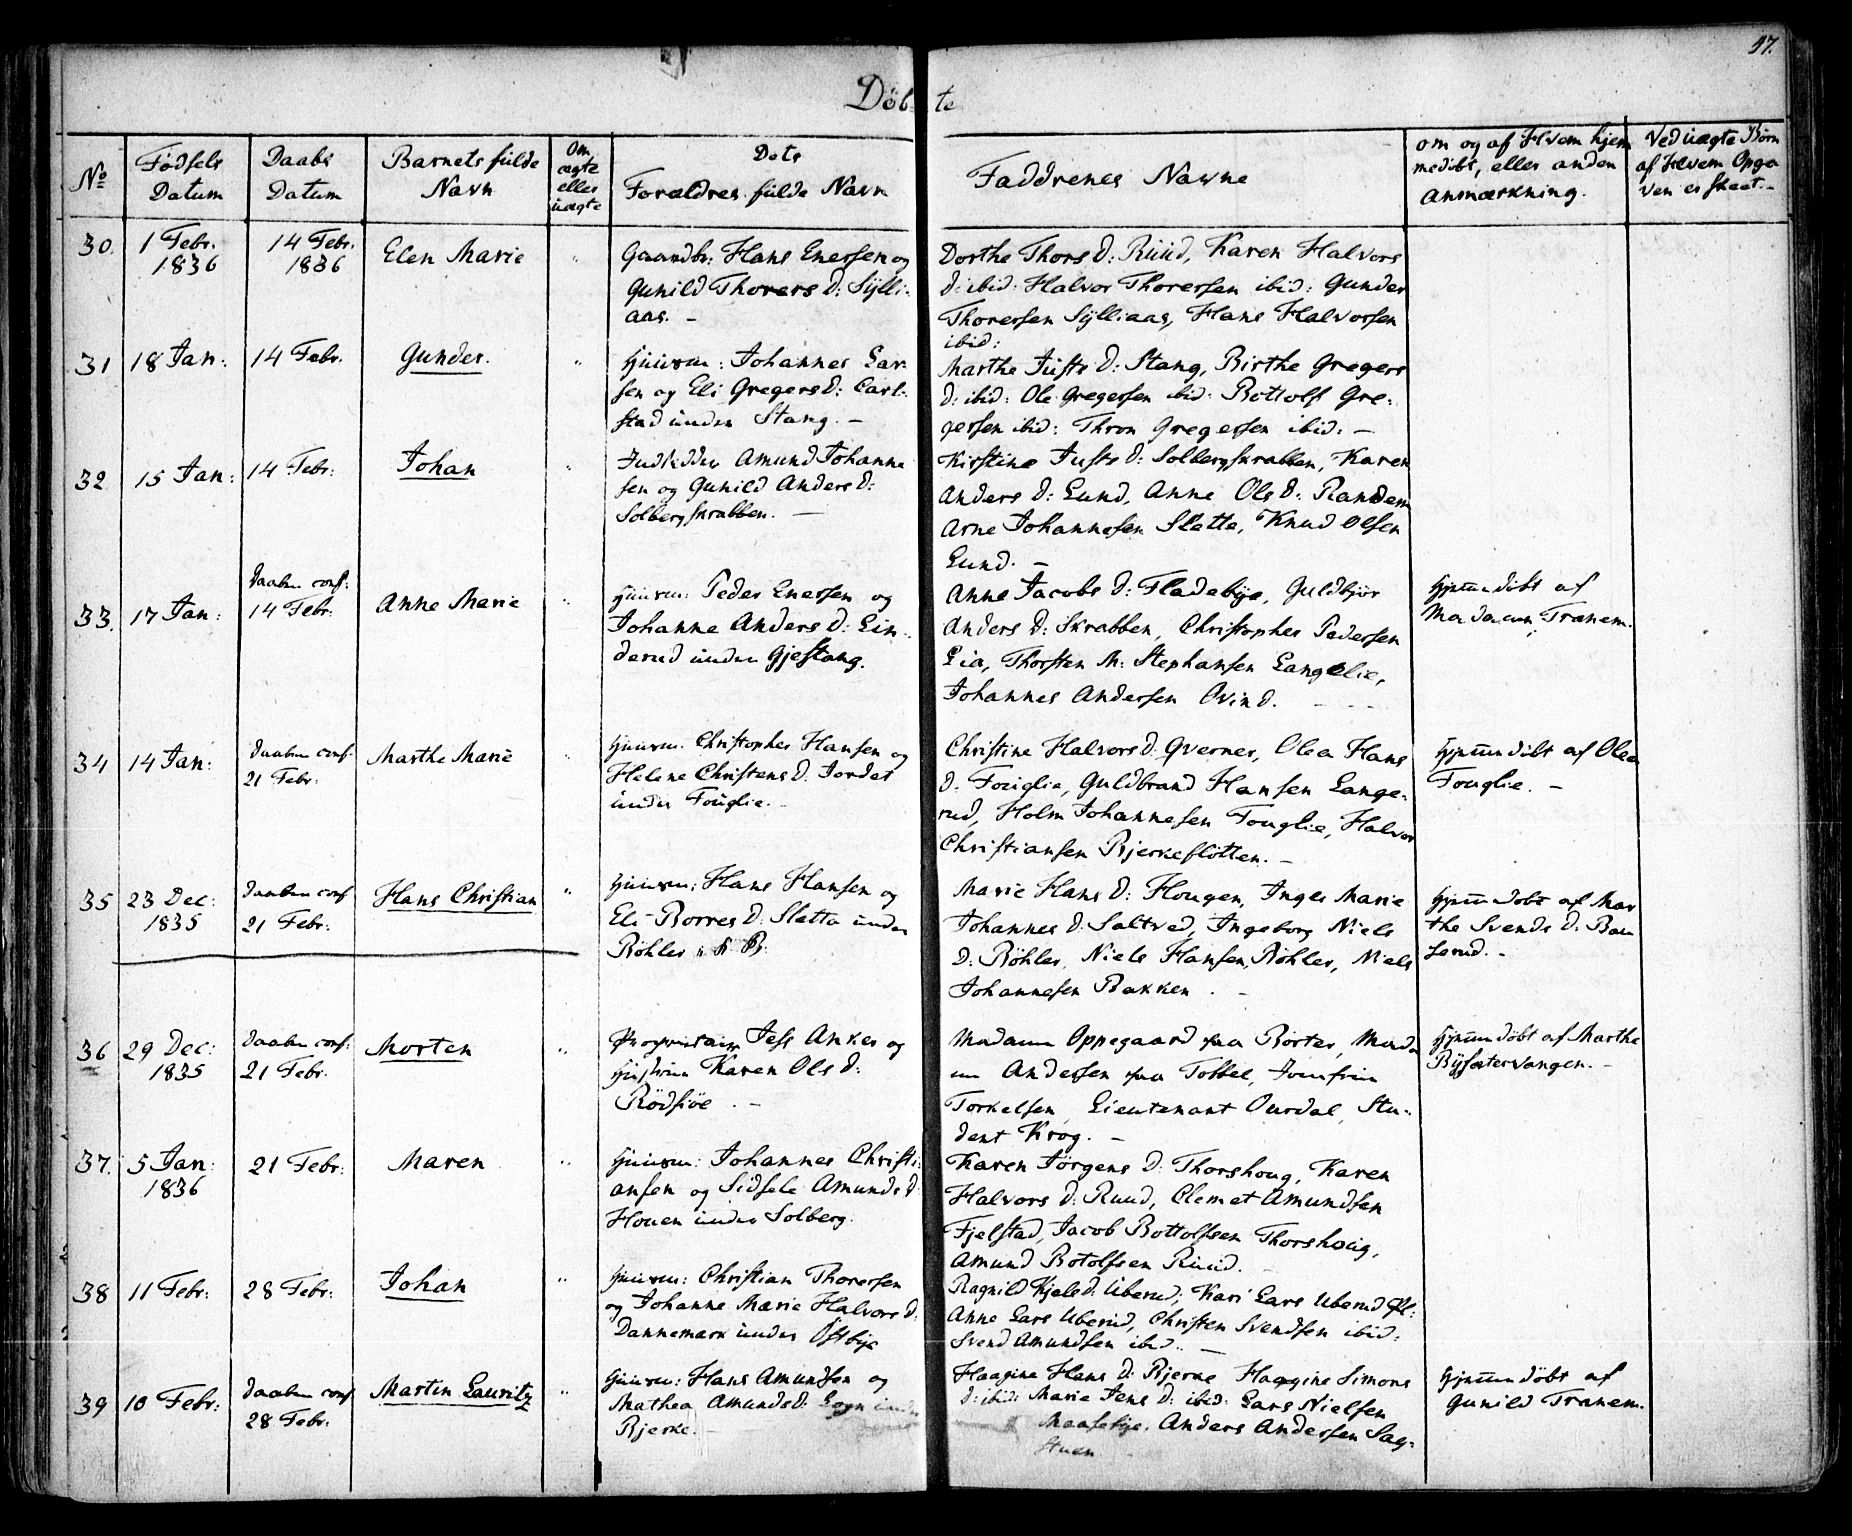 47.
Döb- te
No
Födsels Datum
Daabs Datum
Barnets fulde Navn
Om ægte eller uægte
Dets Forældres fulde Navn
Faddrenes Navne
om og af Hvem hjem
medöbt, eller anden
Anmærkning.
Ved uægte Børn
af Hvem Opga
ven er skeet.-
30. 1 Febr. 1836
14 Febr. 1836
Elen Marie
"
Gaardbr: Hans Enersen og
Gunild Thorers D: Sylli-
aas. -
Dorthe Thors D: Ruud, Karen Halvors
D: ibid: Halvor Thorersen ibid: Gunder
Thorersen Sylliaas, Hans Halvorsen
ibid:
31 18 Jan: 14 Febr. Gunder.
"
Huusm: Johannes Lar-
sen og Eli Gregers D: Carl-
stad under Stang. -
Marthe Justs D: Stang, Birthe Gregers
D: ibid: Ole Gregersen ibid: Bottolf Gre-
gersen ibid: Thron Gregersen ibid: -
32 15 Jan: 14 Febr: Johan
"
Amund Johanne
sen og Gunild Anders D:
Solbergskrabben. -
Kirstine Justs D: Solbergskrabben, Karen
Anders D: Lund, Anne Ols D: Randem
Arne Johannesen Sletta, Knud Olsen
Lund. -
33. 17 Jan:
Daaben conf: 14 Febr:
Anne Marie
"
Huusm: Peder Enersen og
Johanne Anders D: Lin-
derud under Gjestang.
Anne Jacobs D: Fladebye, Guldbjør
Anders D: Skrabben, Christopher Pedersen
Lia, Thorsten M: Stephansen Langelie,
Johannes Andersen Qvind.
Hjemmedöbt af
Madamm Tranem.
34 14 Jan:
Daaben conf. 21 Febr:
Marthe Marie
"
Huusm: Christopher Hansen og
Helene Christens D: Jordet
under Fouglie. -
Christine Halvors D: Qverner, Olea Hans
D. Fouglie, Guldbrand Hansen Lange-
rud, Holm Johannesen Fouglie, Halvor
Christiansen Bjerkeflötten. -
Hjemmedöbt af Olea
Fouglie. -
35 23 Dec: 1835
Daaben conf 21 Febr:
Hans Christian
"
Huusm: Hans Hansen og
Eli Borres D: Sletta under
Böhler
Marie Hans D: Hougen, Inger Marie
Johannes D: Saltved, Ingeborg Niels
D: Böhler, Niels Hansen, Böhler, Niels
Johannesen Bakken. -
Hjemmedöbt af Mar
the Svends D. Bau
serud. -
36 29 Dec: 1835
Daaben conf: 21 Febr.
Morten
"
Proprietair Jess Anker og
Hustrue Karen Ols D:
Rödsiöe. -
Madamm Oppegaard paa Börter, Mada
m Andersen paa Tobbel, Jomfrue
Torkelsen, Lieutenant Ourdal, Stu-
dent Krog. -
Hjemmedöbt af Marthe
Bysætervangen. -
37. 5 Jan: 1836
21 Febr:
Maren
"
Huusm: Johannes Christi-
ansen og Sidsele Amunds D:
Houen under Solberg.
Karen Jörgens D: Thorshoug, Karen
Halvors D: Ruud, Clemet Amundsen
Fjelstad, Jacob Bottolfsen Thorshoug,
Amund Botolfsen Ruud. -
38 11 Febr: 28 Febr: Johan
"
Huusm: Christian Thorersen
og Johanne Marie Halvors D:
Dannemark under Östbye
Ragnild Kjels D. Uberud, Kari Lars Uberud
Anne Lars Uberud, Christen Svendsen ibid:
Svend Amundsen ibid. -
39 10 Febr:
Daaben conf 28 Febr:
Martin Lauritz
"
Huusm: Hans Amundsen og
Mathea Amunds D: Sogn under
Bjerke. -
Haagine Hans D: Bjerke Haagine Simons
D: ibid: Marie Jens D: ibid: Lars Nielsen
Maasebye. Anders Andersen Sag-
stuen
Hjemmedöbt af
Gunild Tranem.